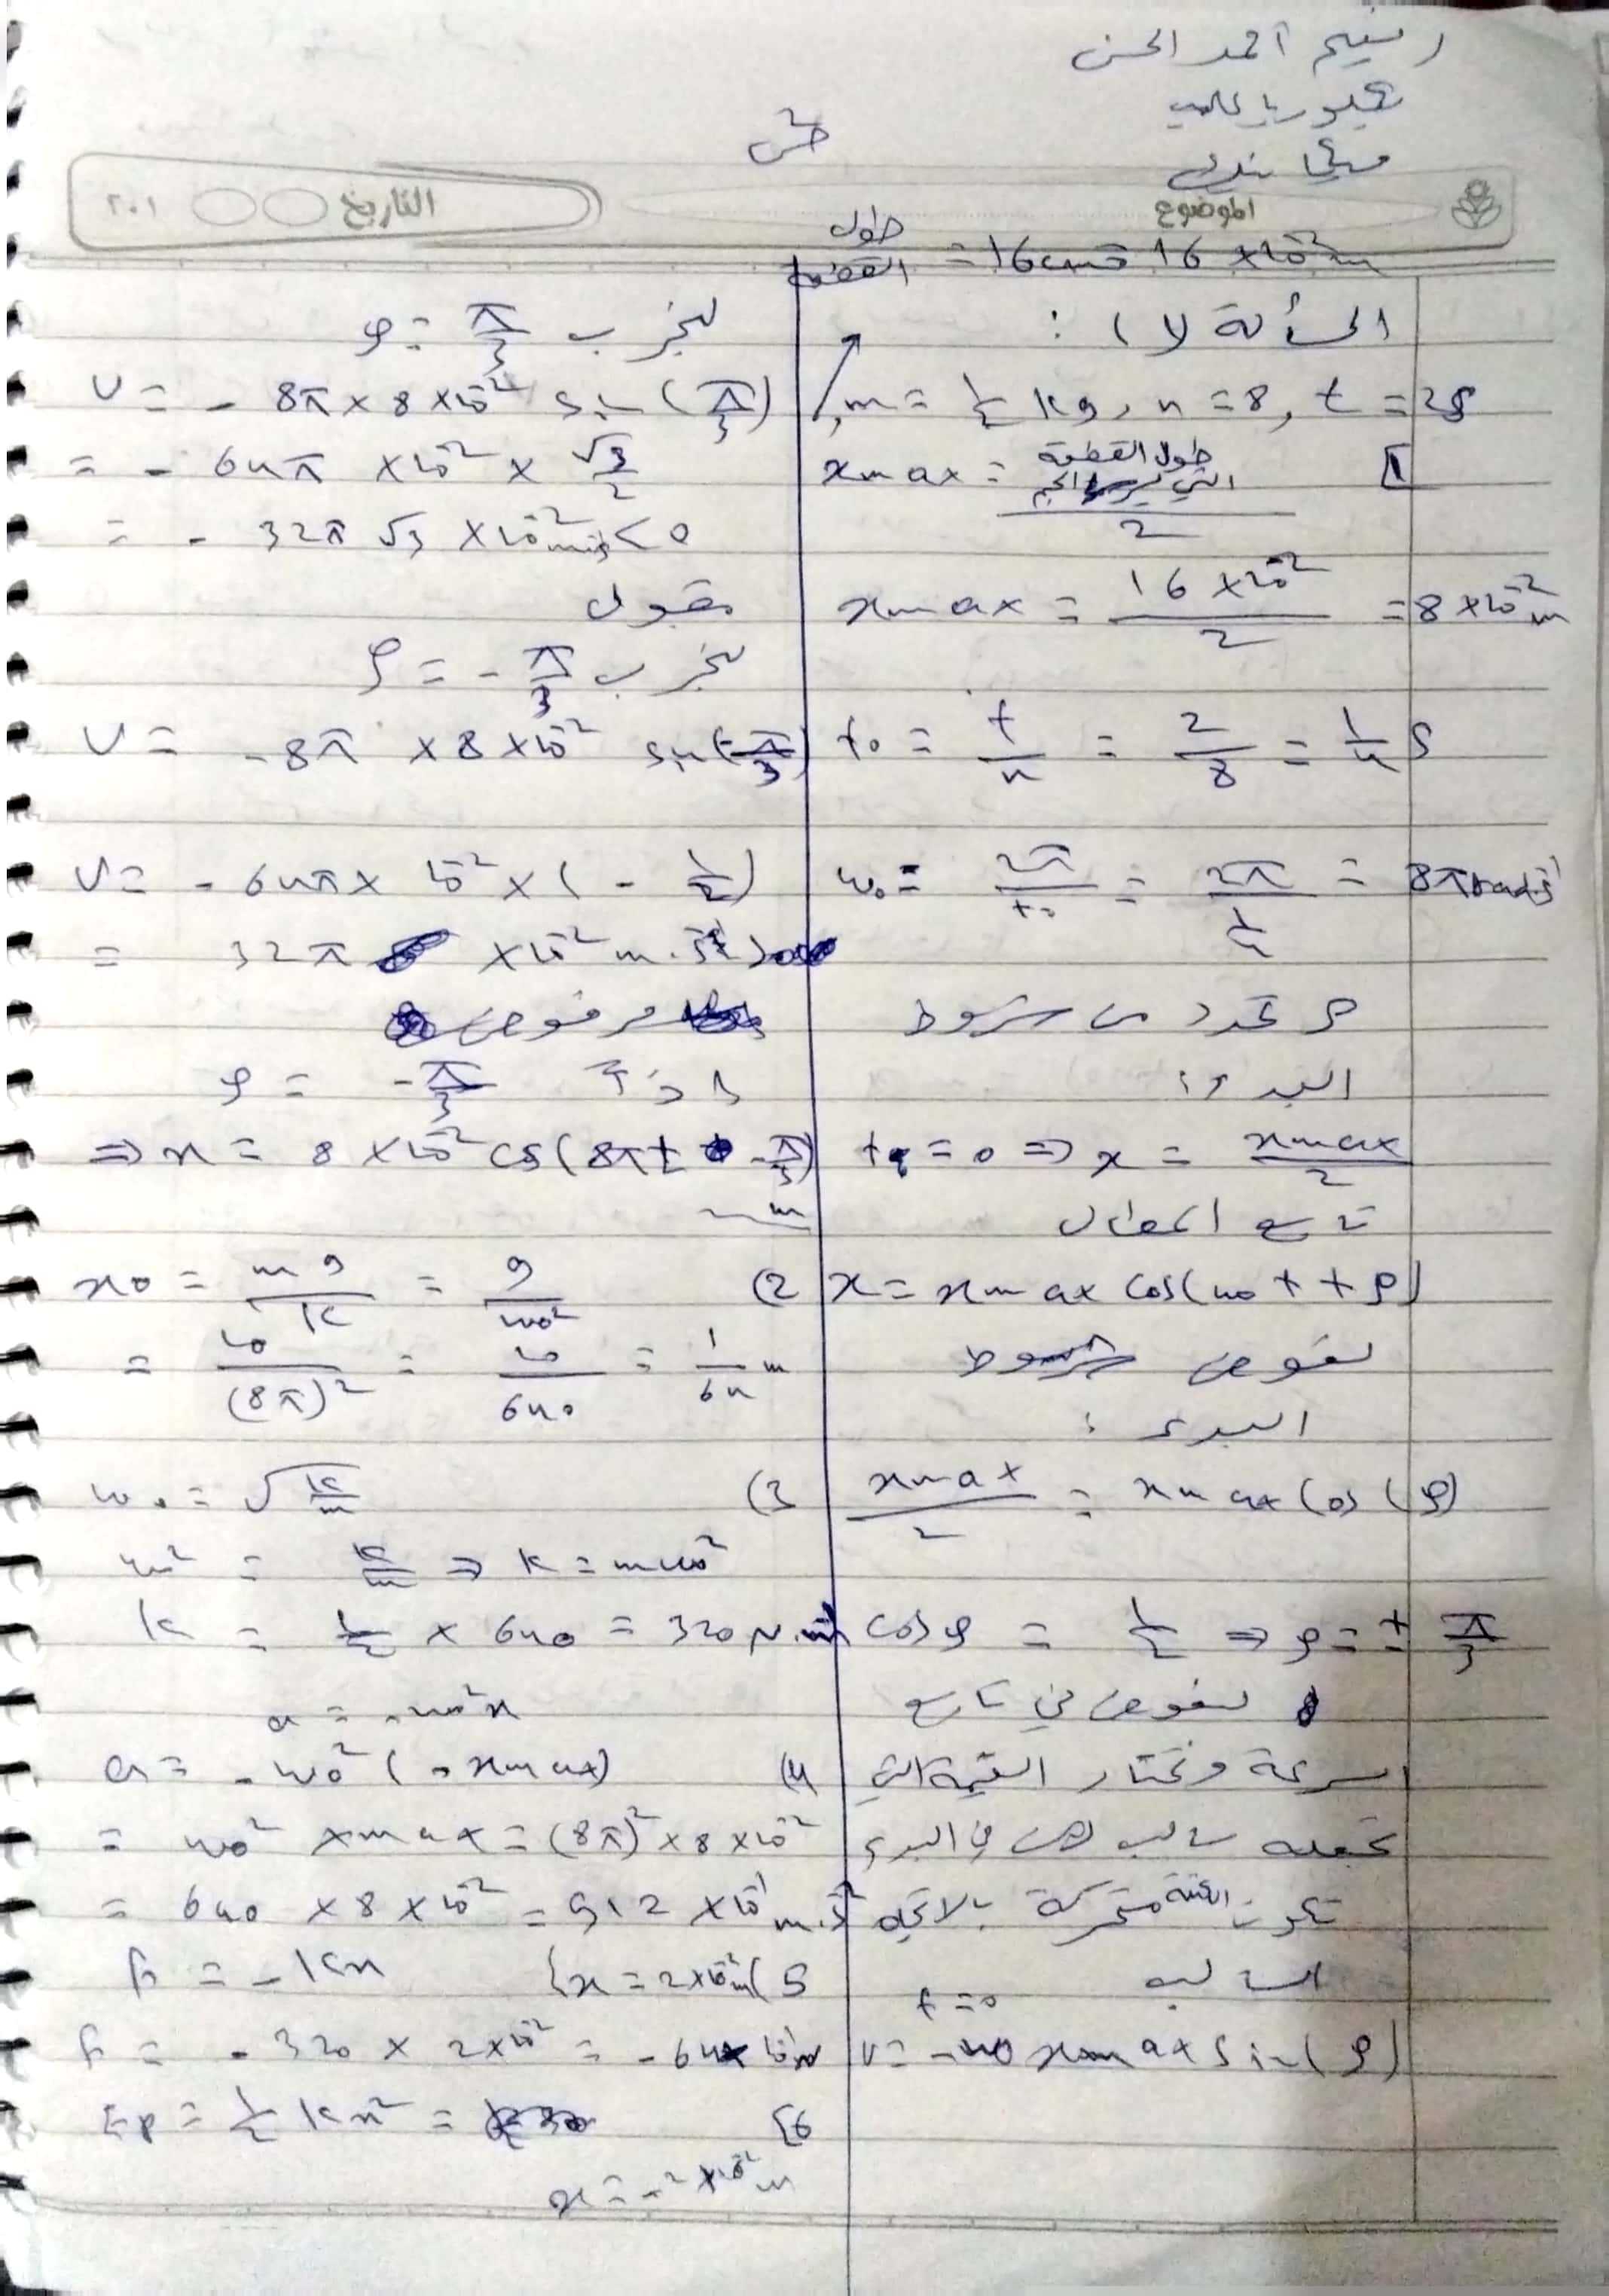 رنيم احمد الحسن
بكلوريا علمي
الموضوع
التاريخ
٢٠١
طول القطعة = 16cm ⇒ 16 × 10⁻² m
المسألة (1 :
m = 1/2 kg, n = 8, t = 2s
1]
xmax = طول القطعة التي يرسمها الجسم / 2
xmax = 16 × 10⁻² / 2 = 8 × 10⁻² m
T₀ = t/n = 2/8 = 1/4 s
ω₀ = 2π/T₀ = 2π/(1/4) = 8π rad.s⁻¹
φ تحدد من شروط
البدء :
t = 0 ⇒ x = xmax/2
تابع المطال
x = xmax cos(ω₀t + φ)
نعوض شروط
البدء :
xmax/2 = xmax cos(φ)
cos φ = 1/2 ⇒ φ = ± π/3
نعوض في تابع
السرعة ونختار القيمة التي
تجعله سالب لأن في البدء
تكون متحركة بالاتجاه
السالب
t = 0
v = -ω₀ xmax sin(φ)
نجرب φ = π/3
v = - 8π × 8 × 10⁻² sin(π/3)
= - 64π × 10⁻² × √3/2
= - 32π √3 × 10⁻² m.s⁻¹ < 0
مقبول
نجرب φ = - π/3
v = - 8π × 8 × 10⁻² sin(-π/3)
v = - 64π × 10⁻² × (- 1/2)
= 32π × 10⁻² m.s⁻¹ > 0
مرفوض
إذاً φ = - π/3
⇒ x = 8 × 10⁻² cos(8πt - π/3) m
(2 x₀ = mg/k = g/ω₀²
= 10/(8π)² = 10/640 = 1/64 m
(3 ω₀ = √(k/m)
ω₀² = k/m ⇒ k = mω₀²
k = 1/2 × 640 = 320 N.m⁻¹
a = -ω₀²x
(4 a = -ω₀² (-xmax)
= ω₀² xmax = (8π)² × 8 × 10⁻²
= 640 × 8 × 10⁻² = 512 × 10⁻¹ m.s⁻²
(5 x = 2×10⁻² m} F = -kx
F = - 320 × 2×10⁻² = - 64 × 10⁻¹ N
6] Ep = 1/2 kx² =
x = -2 × 10⁻² m